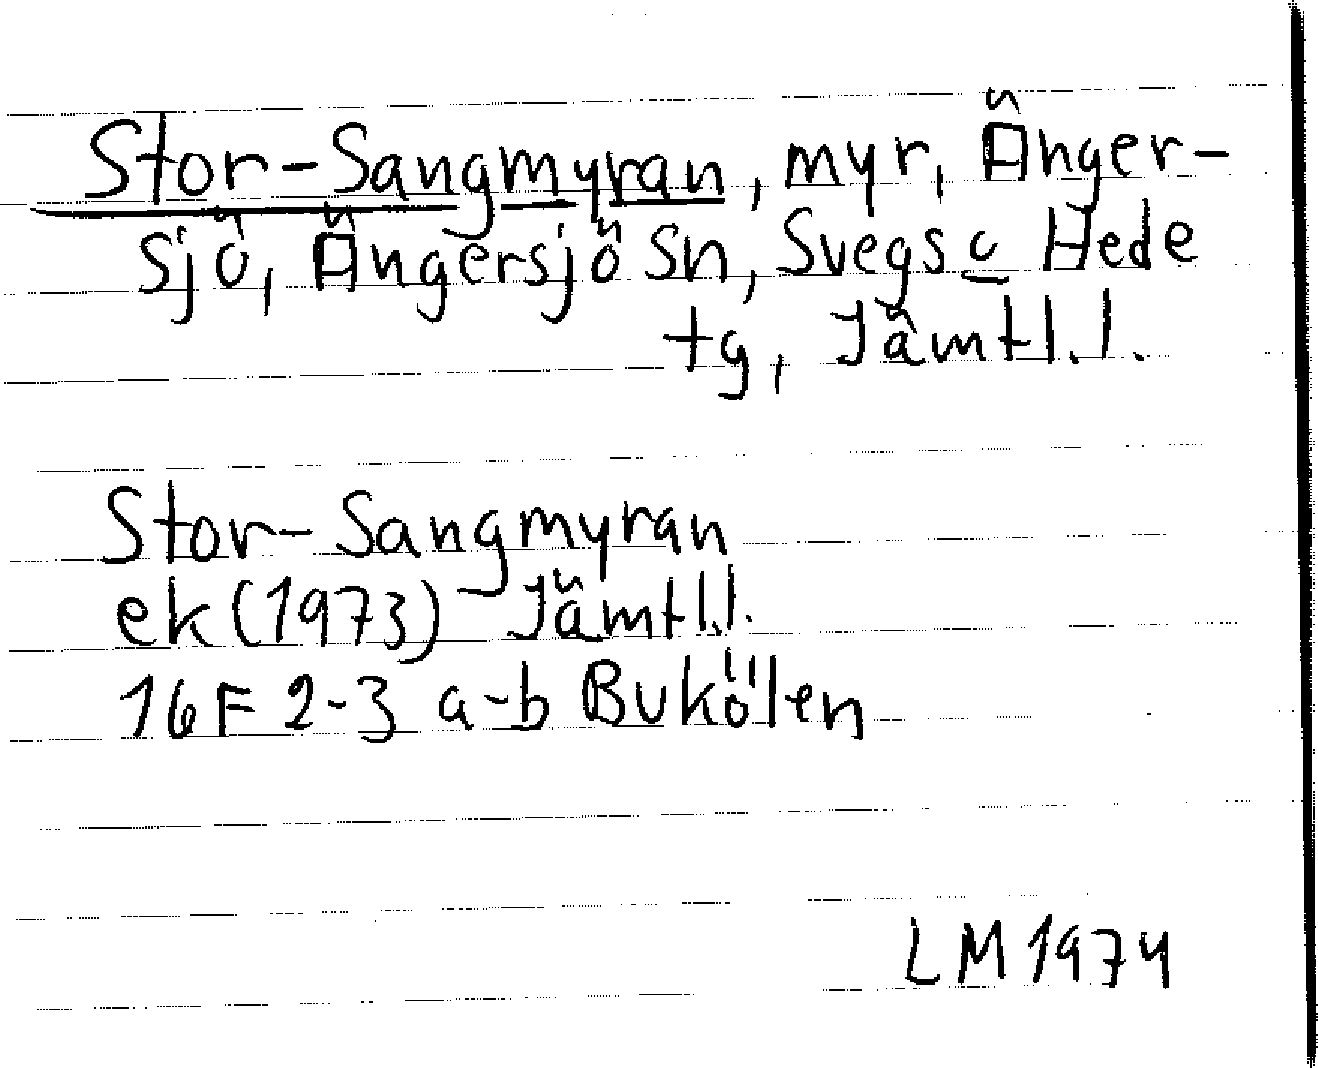 Stor-Sangmyran, myr, Änger-
sjö, Ängersjö sn, Svegs o Hede
tg, Jämtl.l.
Stor-Sangmyran
ek (1973) Jämtl.l.
16F 2-3 a-b Bukölen
LM 1974